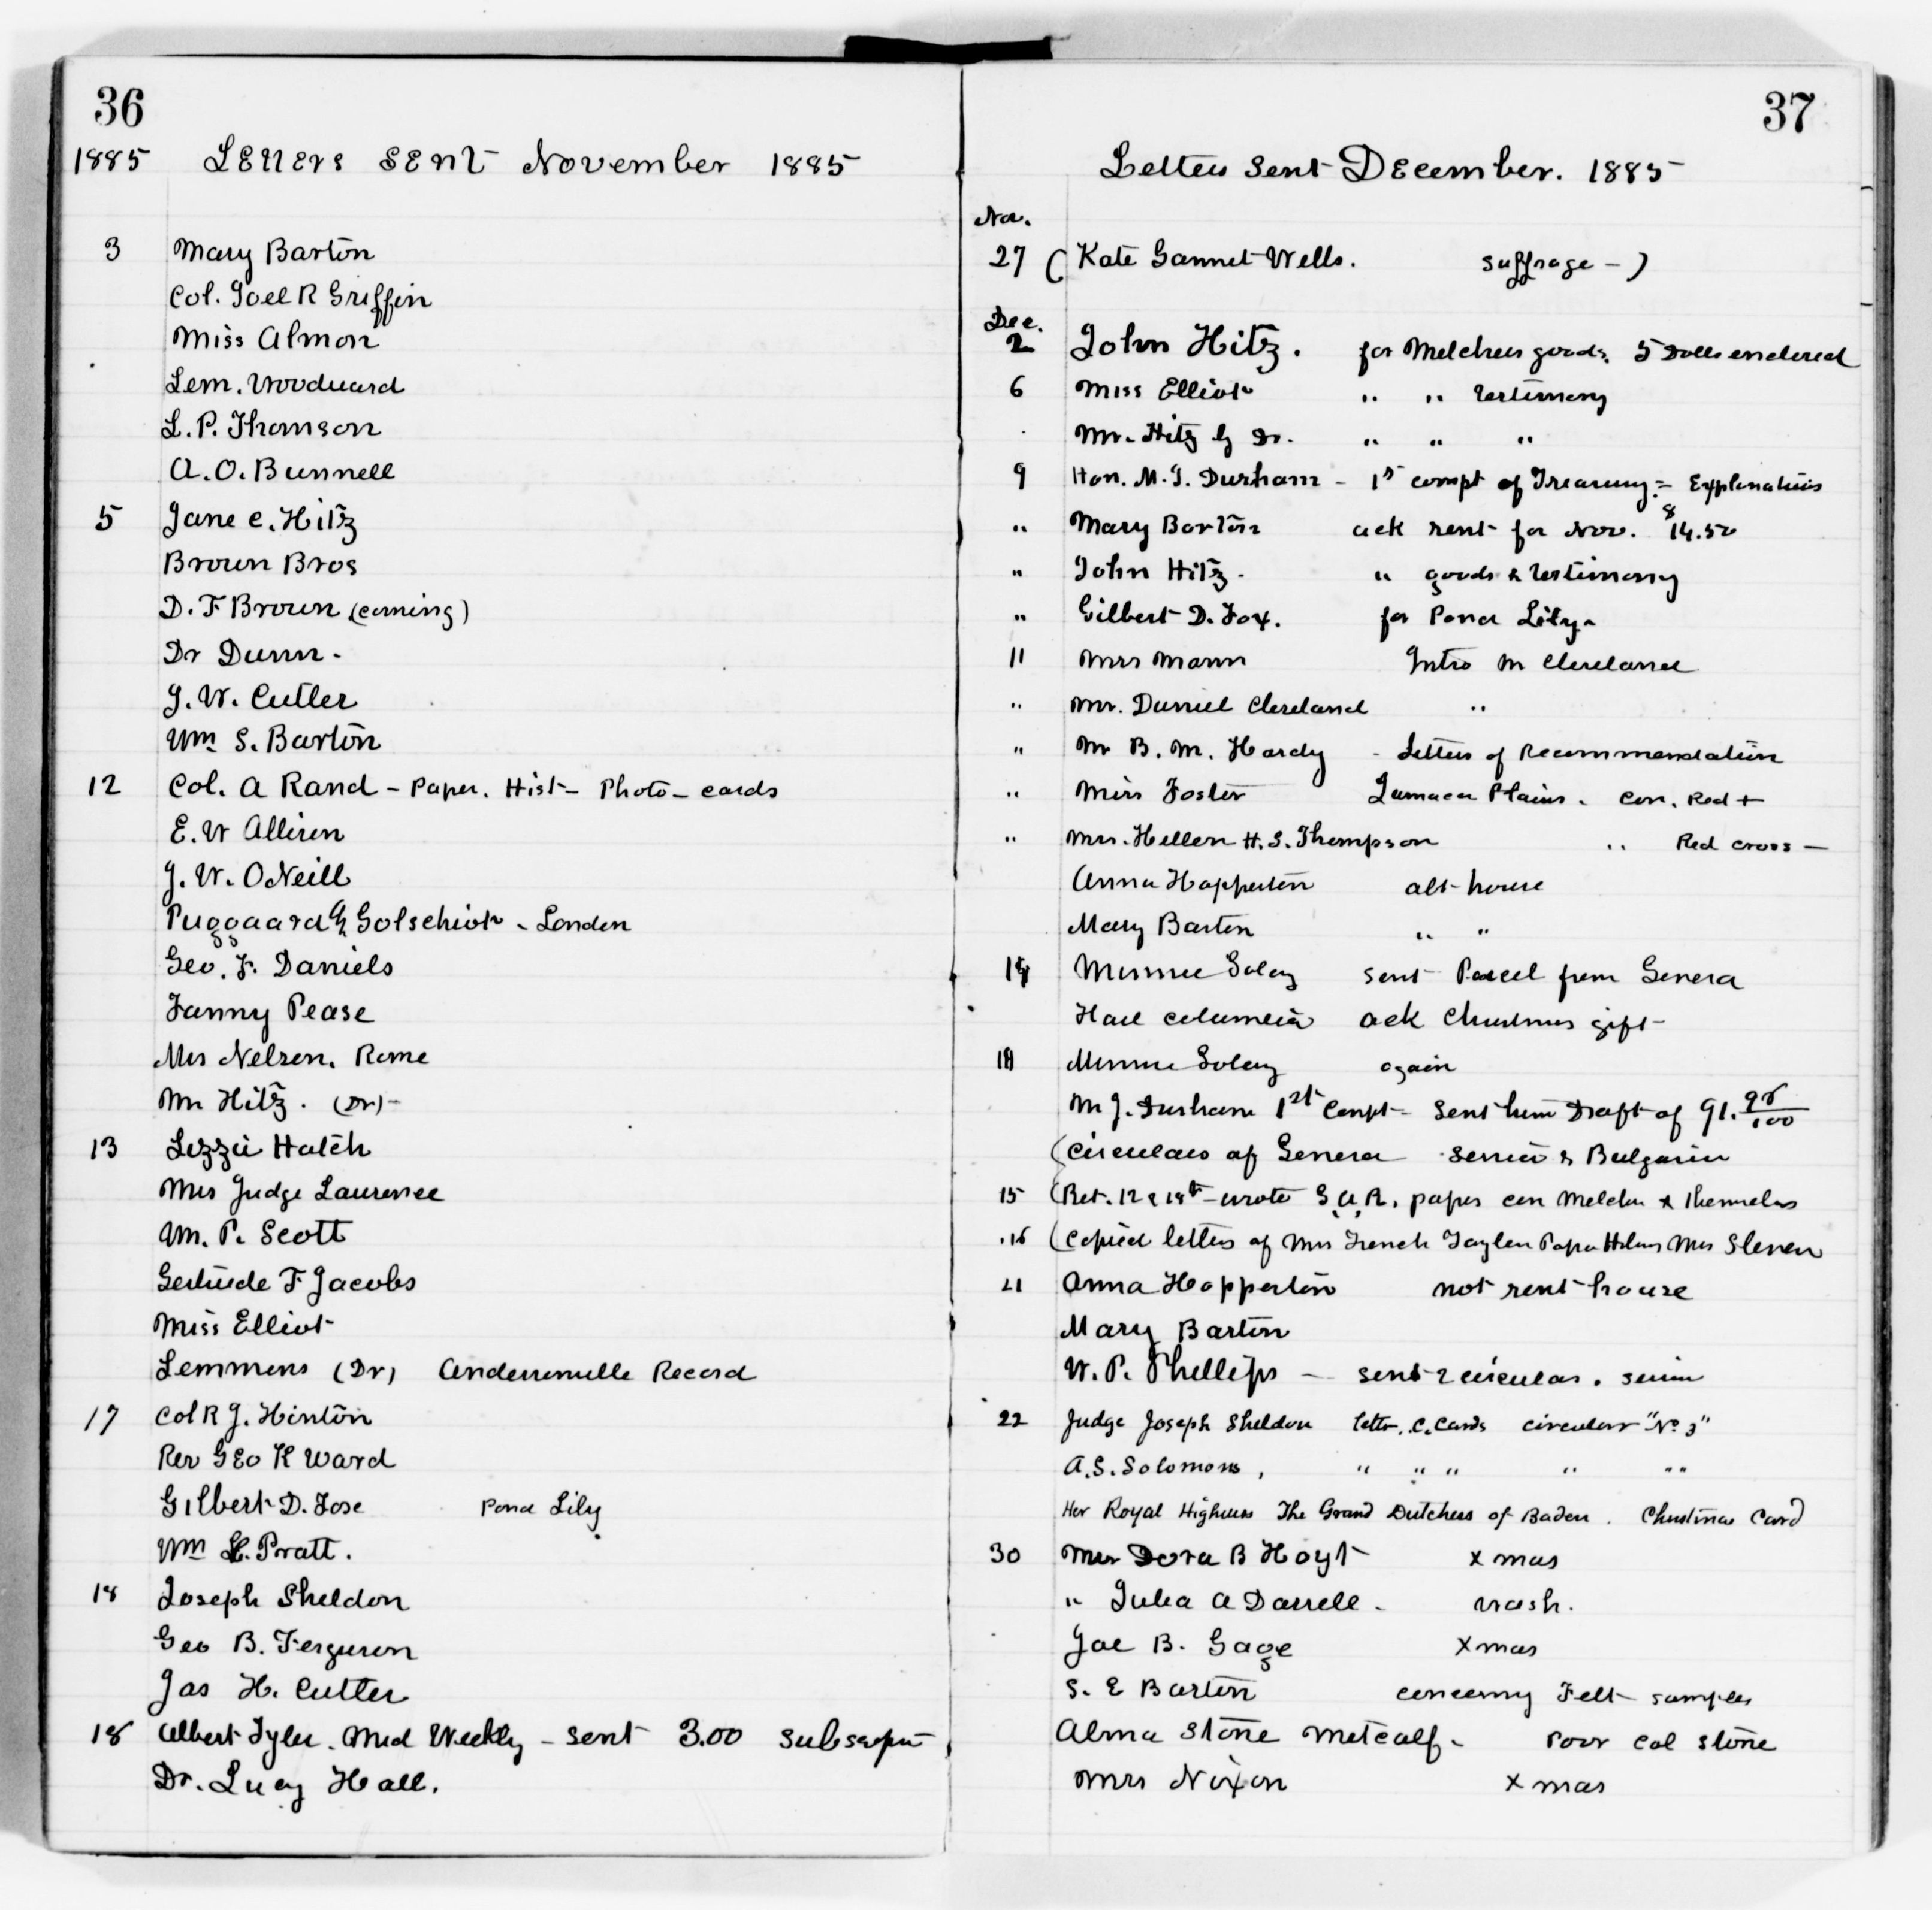 36
1885 Letters sent November 1885
3 Mary Barton
Col. Joel R Griffin
Miss Almon
Lem. Woodward
L. P. Thomson
A. O. Bunnell
5 Jane C. Hitz
Brown Bros
D. F Brown (coming)
Dr Dunn -
J. W. Cutler
Wm S. Barton
12 Col. A Rand - Paper. Hist - Photo - cards
E. W Allison
J. W. ONeill
Puggaard & Golschiot - London
Geo. F. Daniels
Fanny Pease
Mrs Nelson. Rome
Mr Hitz. (Dr) -
13 Lizzie Hatch
Mrs Judge Laurence
Wm. P. Scott
Gertrude F Jacobs
Miss Elliot
Lemmons (Dr) Andersonville Record
17 Col R J. Hinton
Rev Geo K Ward
Gilbert D. Fose Pond Lily
Wm L. Pratt.
18 Joseph Sheldon
Geo B. Ferguson
Jas H. Cutter
18 Albert Tyler. Med Weekly - sent 3.00
Dr. Lucy Hall.
37
Letters sent December. 1885
Nov.
27 (Kate Gannet Wells. suffrage - )
Dec.
2 John Hitz. for Melchers goods. 5 Dolls enclosed
6 Miss Elliot " " testimony
Mr. Hitz Dr. " " "
9 Hon. M. J. Durham - 1st compt of Treasury. = Explanations
" Mary Barton ack rent for Nov. $14.50
" John Hitz - " goods & testimony
" Gilbert D. Fox. for Pond Lily -
11 Mrs Mann Intro M Cleveland
" Mr. Daniel Cleveland "
" Mr B. M. Hardy - Letters of Recommendation
" Miss Foster Jamaca Plains. con. Red +
" Mrs. Hellen H. S. Thompson " Red Cross -
Anna Hopperton abt house
Mary Barton " "
14 Minnie Golay sent Parcel from Geneva
Hail Columbia ack Christmas gift
18 Minnie Golay again
M J. Durham 1st Compt - sent him Draft of 91. 95/100
(Circulars of Geneva Servia & Bulgaria
15 (Bet. 12 & 18th - wrote G.A.R. papers con
16 (Copied letters of Mrs French Mrs
21 Anna Hopperton not rent house
Mary Barton
W. P. Phillips - sent 2 circular.
22 Judge Joseph Sheldon letter. C. Cards circular "No 3"
A. S. Solomons, " " " " " "
Her Royal Highness The Grand Dutchess of Baden. Christmas Card
30 Mrs Dora B Hoyt xmas
" Julia A Darrell - wash.
Joe B. Gage xmas
S. E Barton concerng Felt samples
Alma Stone Metcalf - Poor Col Stone
Mrs Nixon xmas